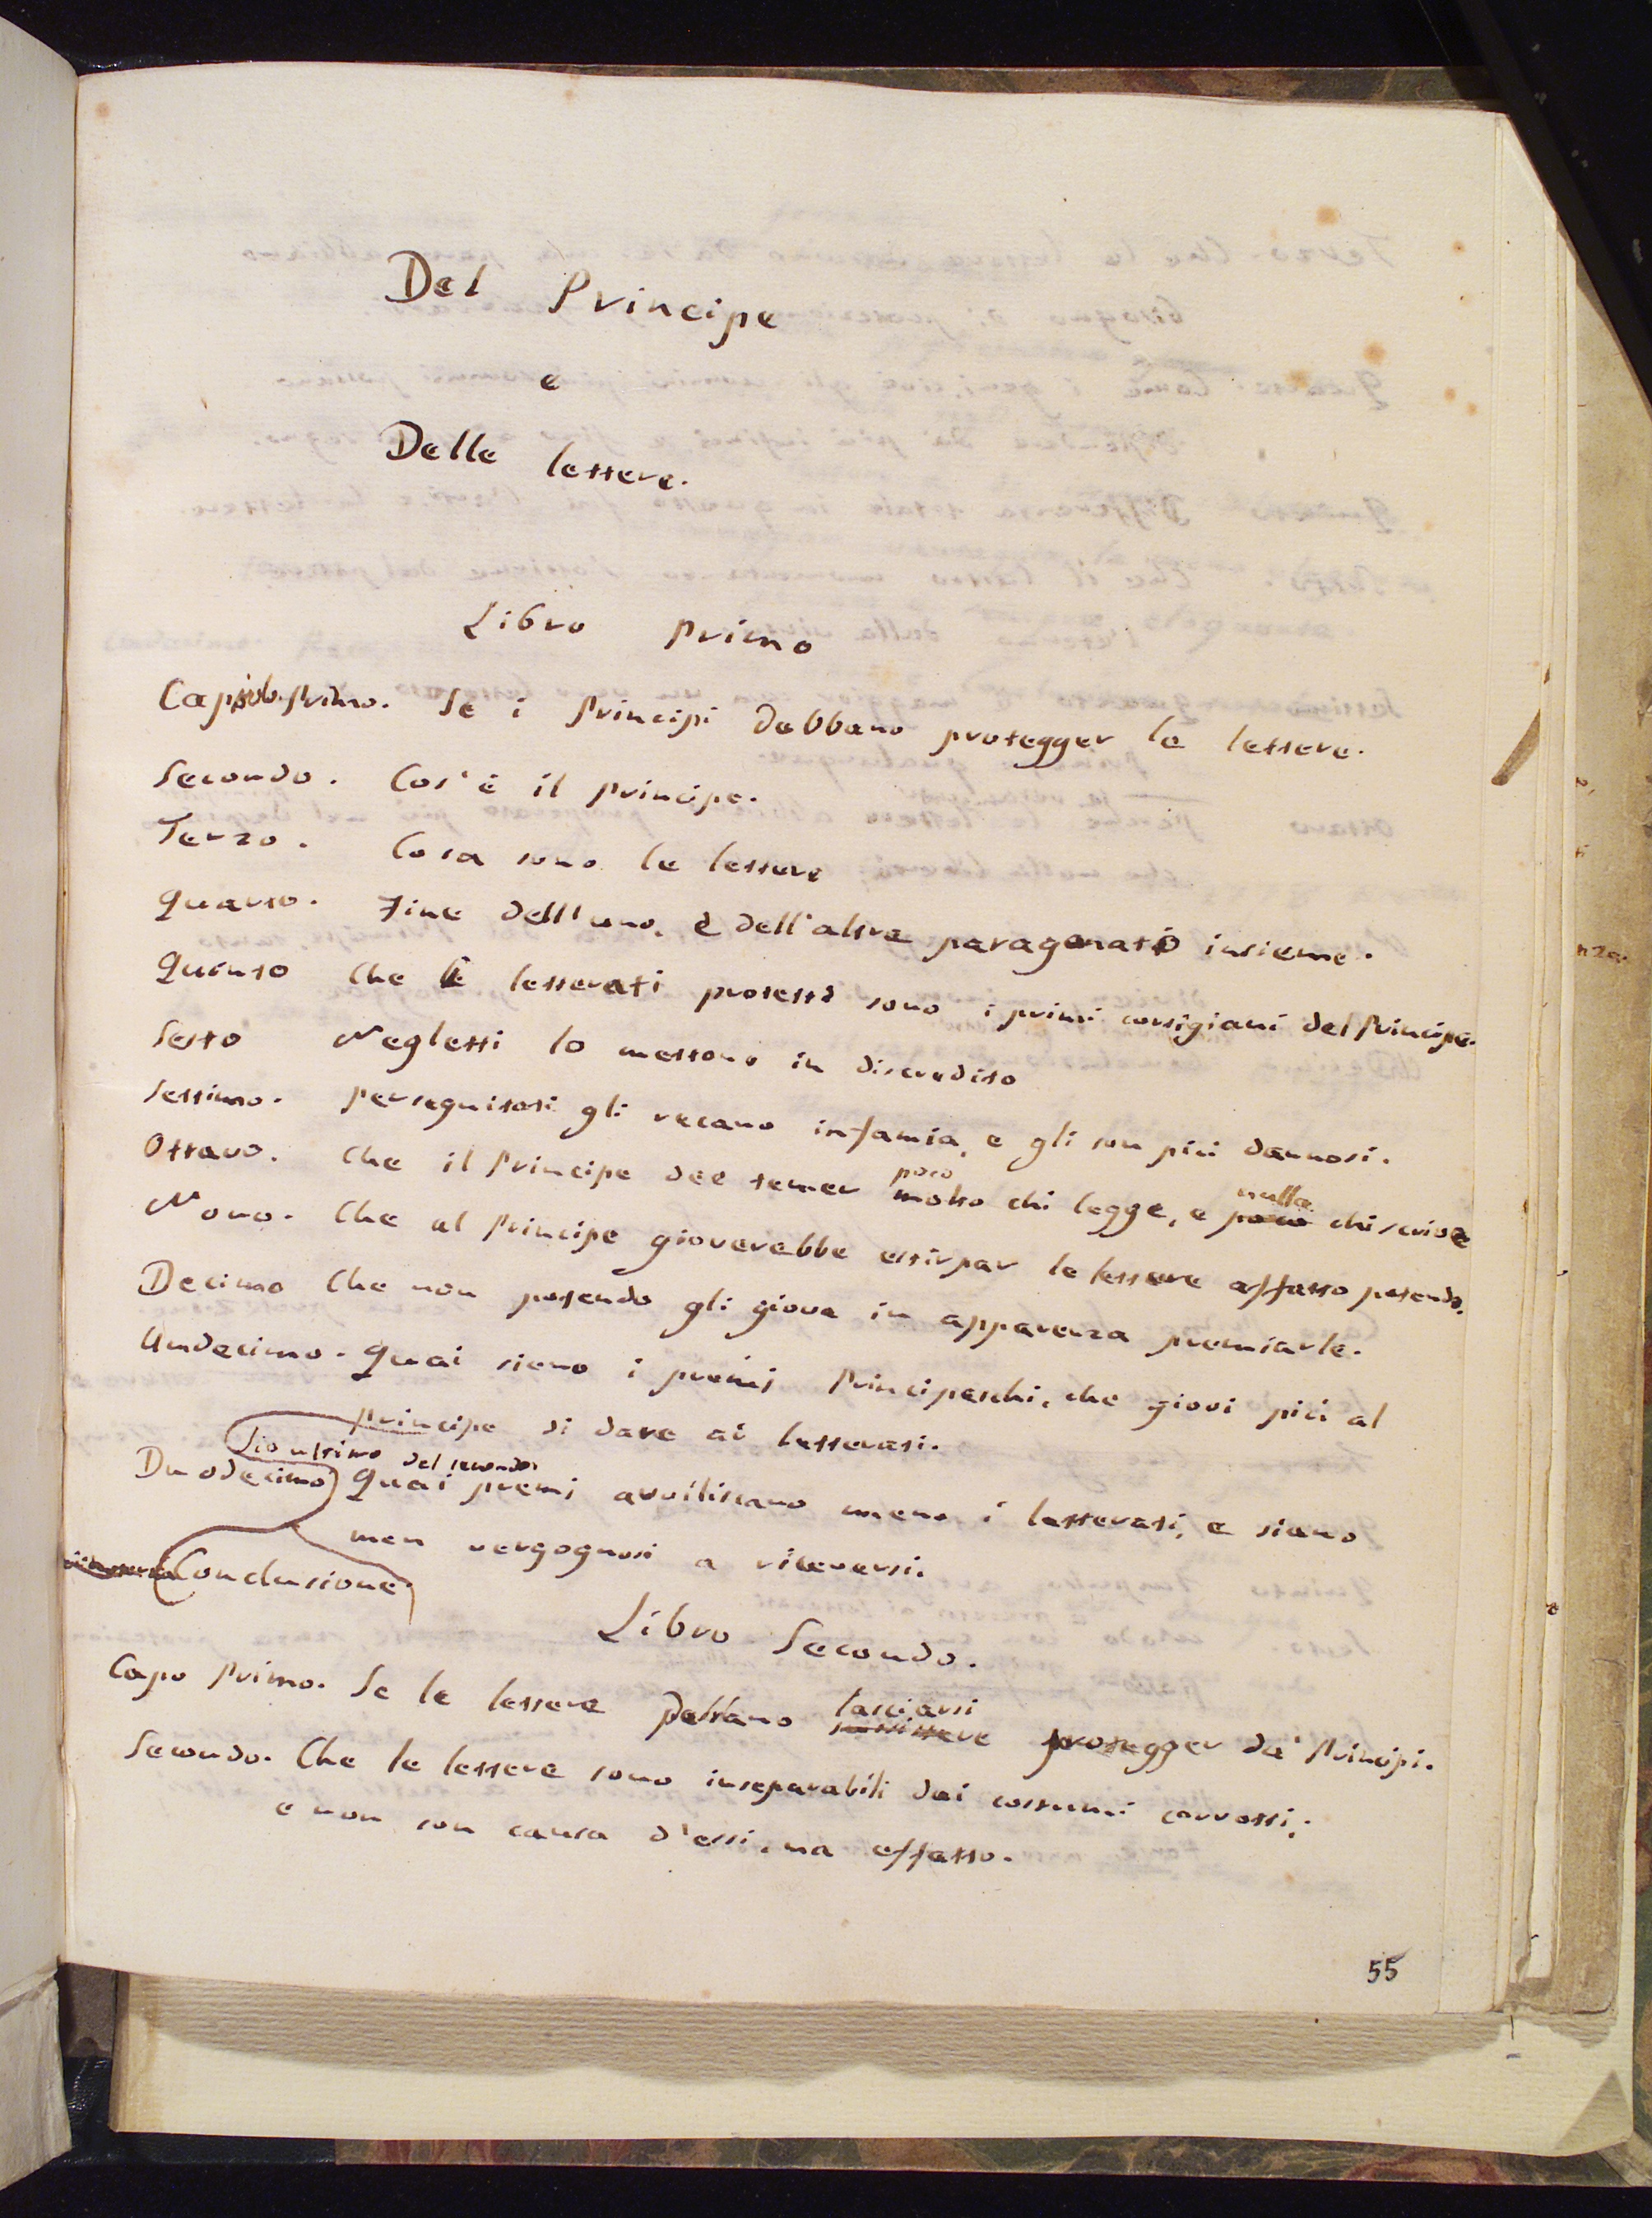 Del Principe
e
Delle lettere.
Libro Primo
Capitolo Primo. Se i Principi debbano protegger le lettere.
Secondo. Cos'è il Principe.
Terzo. Cosa sono le lettere
Quarto. Fine dell'uno, e dell'altre paragonati insieme.
Quinto Che i letterati protetti sono i primi cortigiani del Principe.
Sesto Negletti lo mettono in discredito
Settimo. Perseguitati gli recano infamia, e gli son più dannosi.
poco nulla
Ottavo. Che il Principe dee temer molto chi legge, e poco chi scrive
Nono. Che al Principe gioverebbe estirpar le lettere affatto potendo.
Decimo Che non potendo gli giova in apparenza premiarle.
Undecimo. Quai sieno i premj Principeschi, che giovi più al
Principe di dare ai letterati.
Sia ultimo del secondo
Duodecimo Quai premj avviliscano meno i letterati, e siano
men vergognosi a riceversi.
Conclusione.
Libro Secondo.
lasciarsi
Capo Primo. Se le lettere debbano protegger da' Principi.
Secondo. Che le lettere sono inseparabili dai costumi corrotti;
e non son causa d'essi, ma effetto.
55